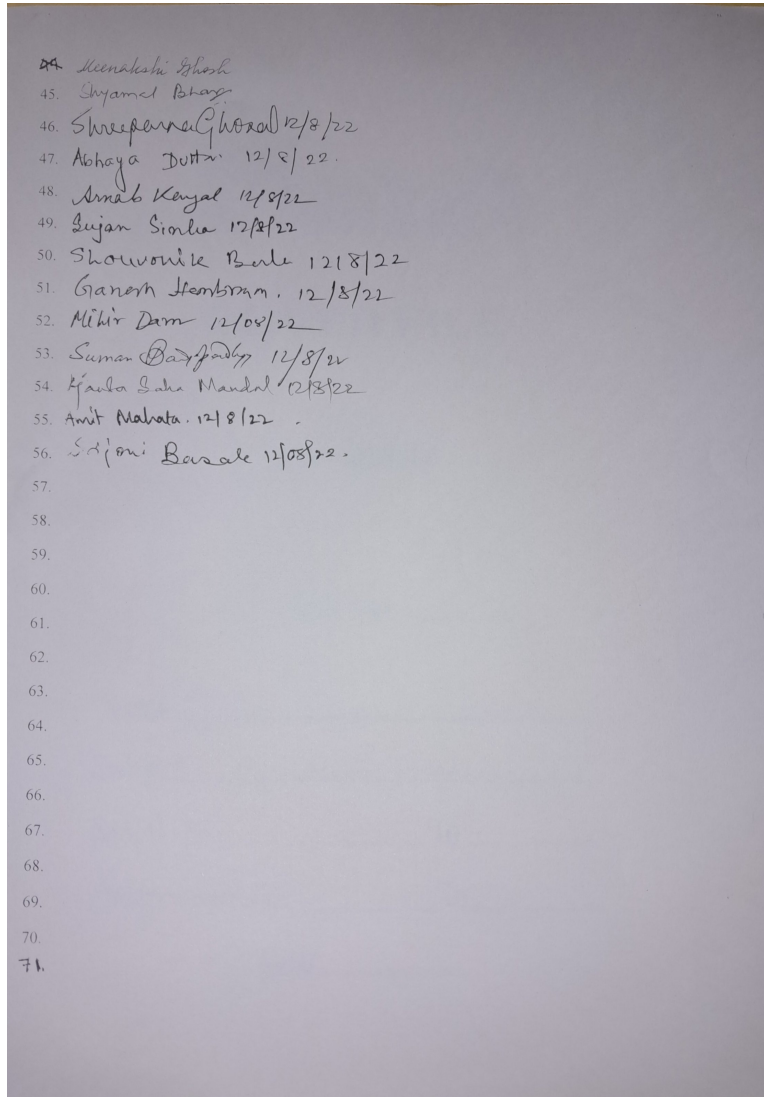 44. Meenakshi Ghosh
45. Shyamal
46. Shreeparna Ghoral 12/8/22
47. Abhaya Dutta. 12/8/22.
48. Arnab Kenyal 12/8/22
49. Sujan Sinha 12/8/22
50. Shouvonik 12/8/22
51. Ganesh Hembram. 12/8/22
52. Mihir Dam 12/08/22
53. Suman 12/8/22
54. Saha Mandal 12/8/22
55. Amit Mahata. 12/8/22.
56. 12/08/22.
57.
58.
59.
60.
61.
62.
63.
64.
65.
66.
67.
68.
69.
70.
71.